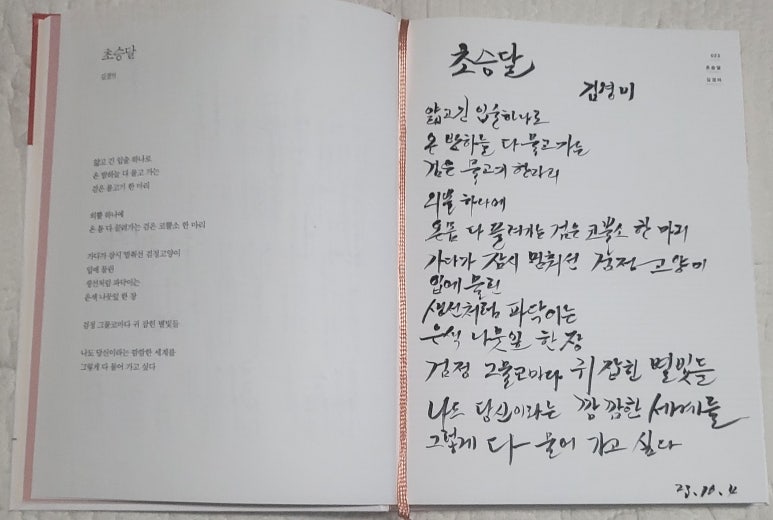 초승달
김경미
얇고 긴 입술 하나로
온 밤하늘 다 물고 가는
검은 물고기 한 마리
외뿔 하나에
온 몸 다 끌려가는 검은 코뿔소 한 마리
가다가 잠시 멈춰선 검정고양이
입에 물린
생선처럼 파닥이는
은색 나뭇잎 한 장
검정 그물코마다 귀 잡힌 별빛들
나도 당신이라는 깜깜한 세계를
그렇게 다 물어 가고 싶다
023
초승달
김경미
초승달
김영미
얇고 긴 입술하나로
온 밤하늘 다 물고 가는
검은 물고기 한마리
외뿔 하나에
온몸 다 끌려가는 검은 코뿔소 한 마리
가다가 잠시 멈춰선 검정 고양이
입에 물린
생선처럼 파닥이는
은색 나뭇잎 한 장
검정 그물코마다 귀 잡힌 별빛들
나도 당신이라는 깜깜한 세계를
그렇게 다 물어 가고 싶다